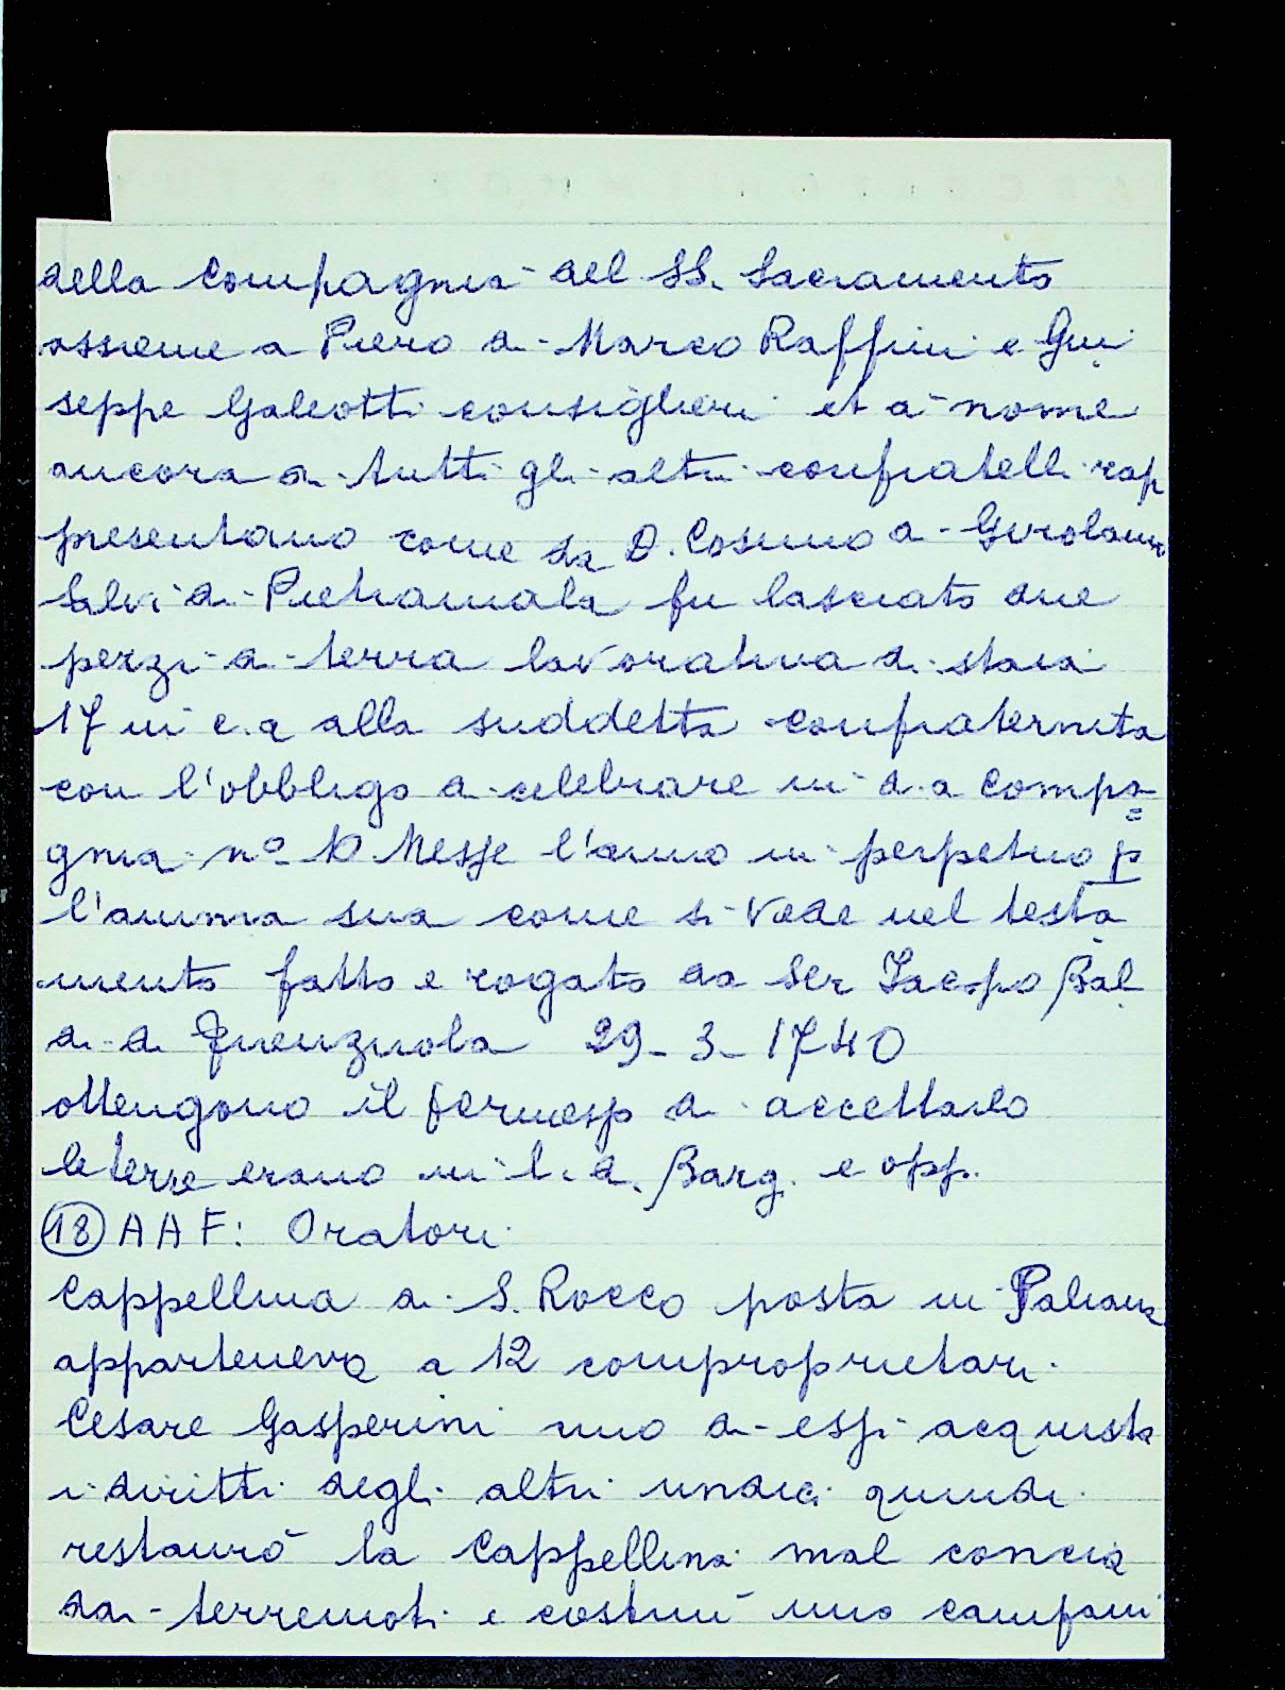 della Compagnia del SS. Sacramento
assieme a Piero di Marco Raffini e Giu
seppe Galeotti consiglieri et a nome
ancora di tutti gli altri confratelli rap
presentano come da D. Cosimo di Girolamo
Salvi di Pietramala fu lasciato due
pezzi di terra lavorativa di staia
17 in c.a alla suddetta confraternita
con l'obbligo di celebrare in d.a Compa=
gnia n° 10 Messe l'anno in perpetuo p
l'anima sua come si vede nel testa
mento fatto e rogato da Ser Iacopo Bal
di di Firenzuola 29-3-1740
ottengono il permesso di accettarlo
le terre erano in l.d. Barg. e opp.
(18) AAF: Oratori
Cappellina di S. Rocco posta in Paliana
apparteneva a 12 comproprietari.
Cesare Gasperini uno di essi acquista
i diritti degli altri undici quindi
restaurò la Cappellina mal concia
dai terremoti e costruì uno campani